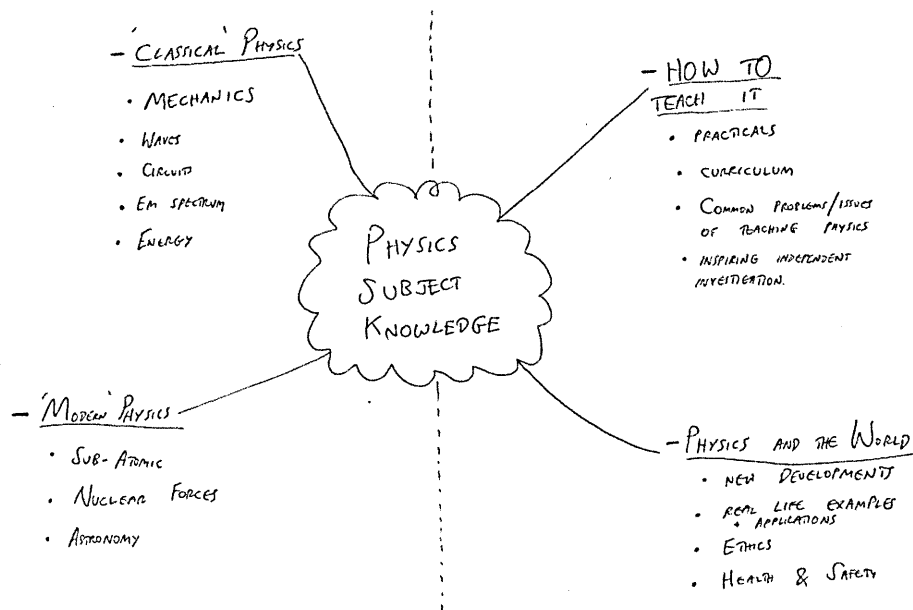 - 'CLASSICAL' PHYSICS
• MECHANICS
• WAVES
• CIRCUITS
• EM SPECTRUM
• ENERGY
- HOW TO
TEACH IT
• PRACTICALS
• CURRICULUM
• COMMON PROBLEMS/ISSUES
OF TEACHING PHYSICS
• INSPIRING INDEPENDENT
INVESTIGATION.
PHYSICS
SUBJECT
KNOWLEDGE
- 'MODERN' PHYSICS
• SUB-ATOMIC
• NUCLEAR FORCES
• ASTRONOMY
- PHYSICS AND THE WORLD
• NEW DEVELOPMENTS
• REAL LIFE EXAMPLES
+ APPLICATIONS
• ETHICS
• HEALTH & SAFETY